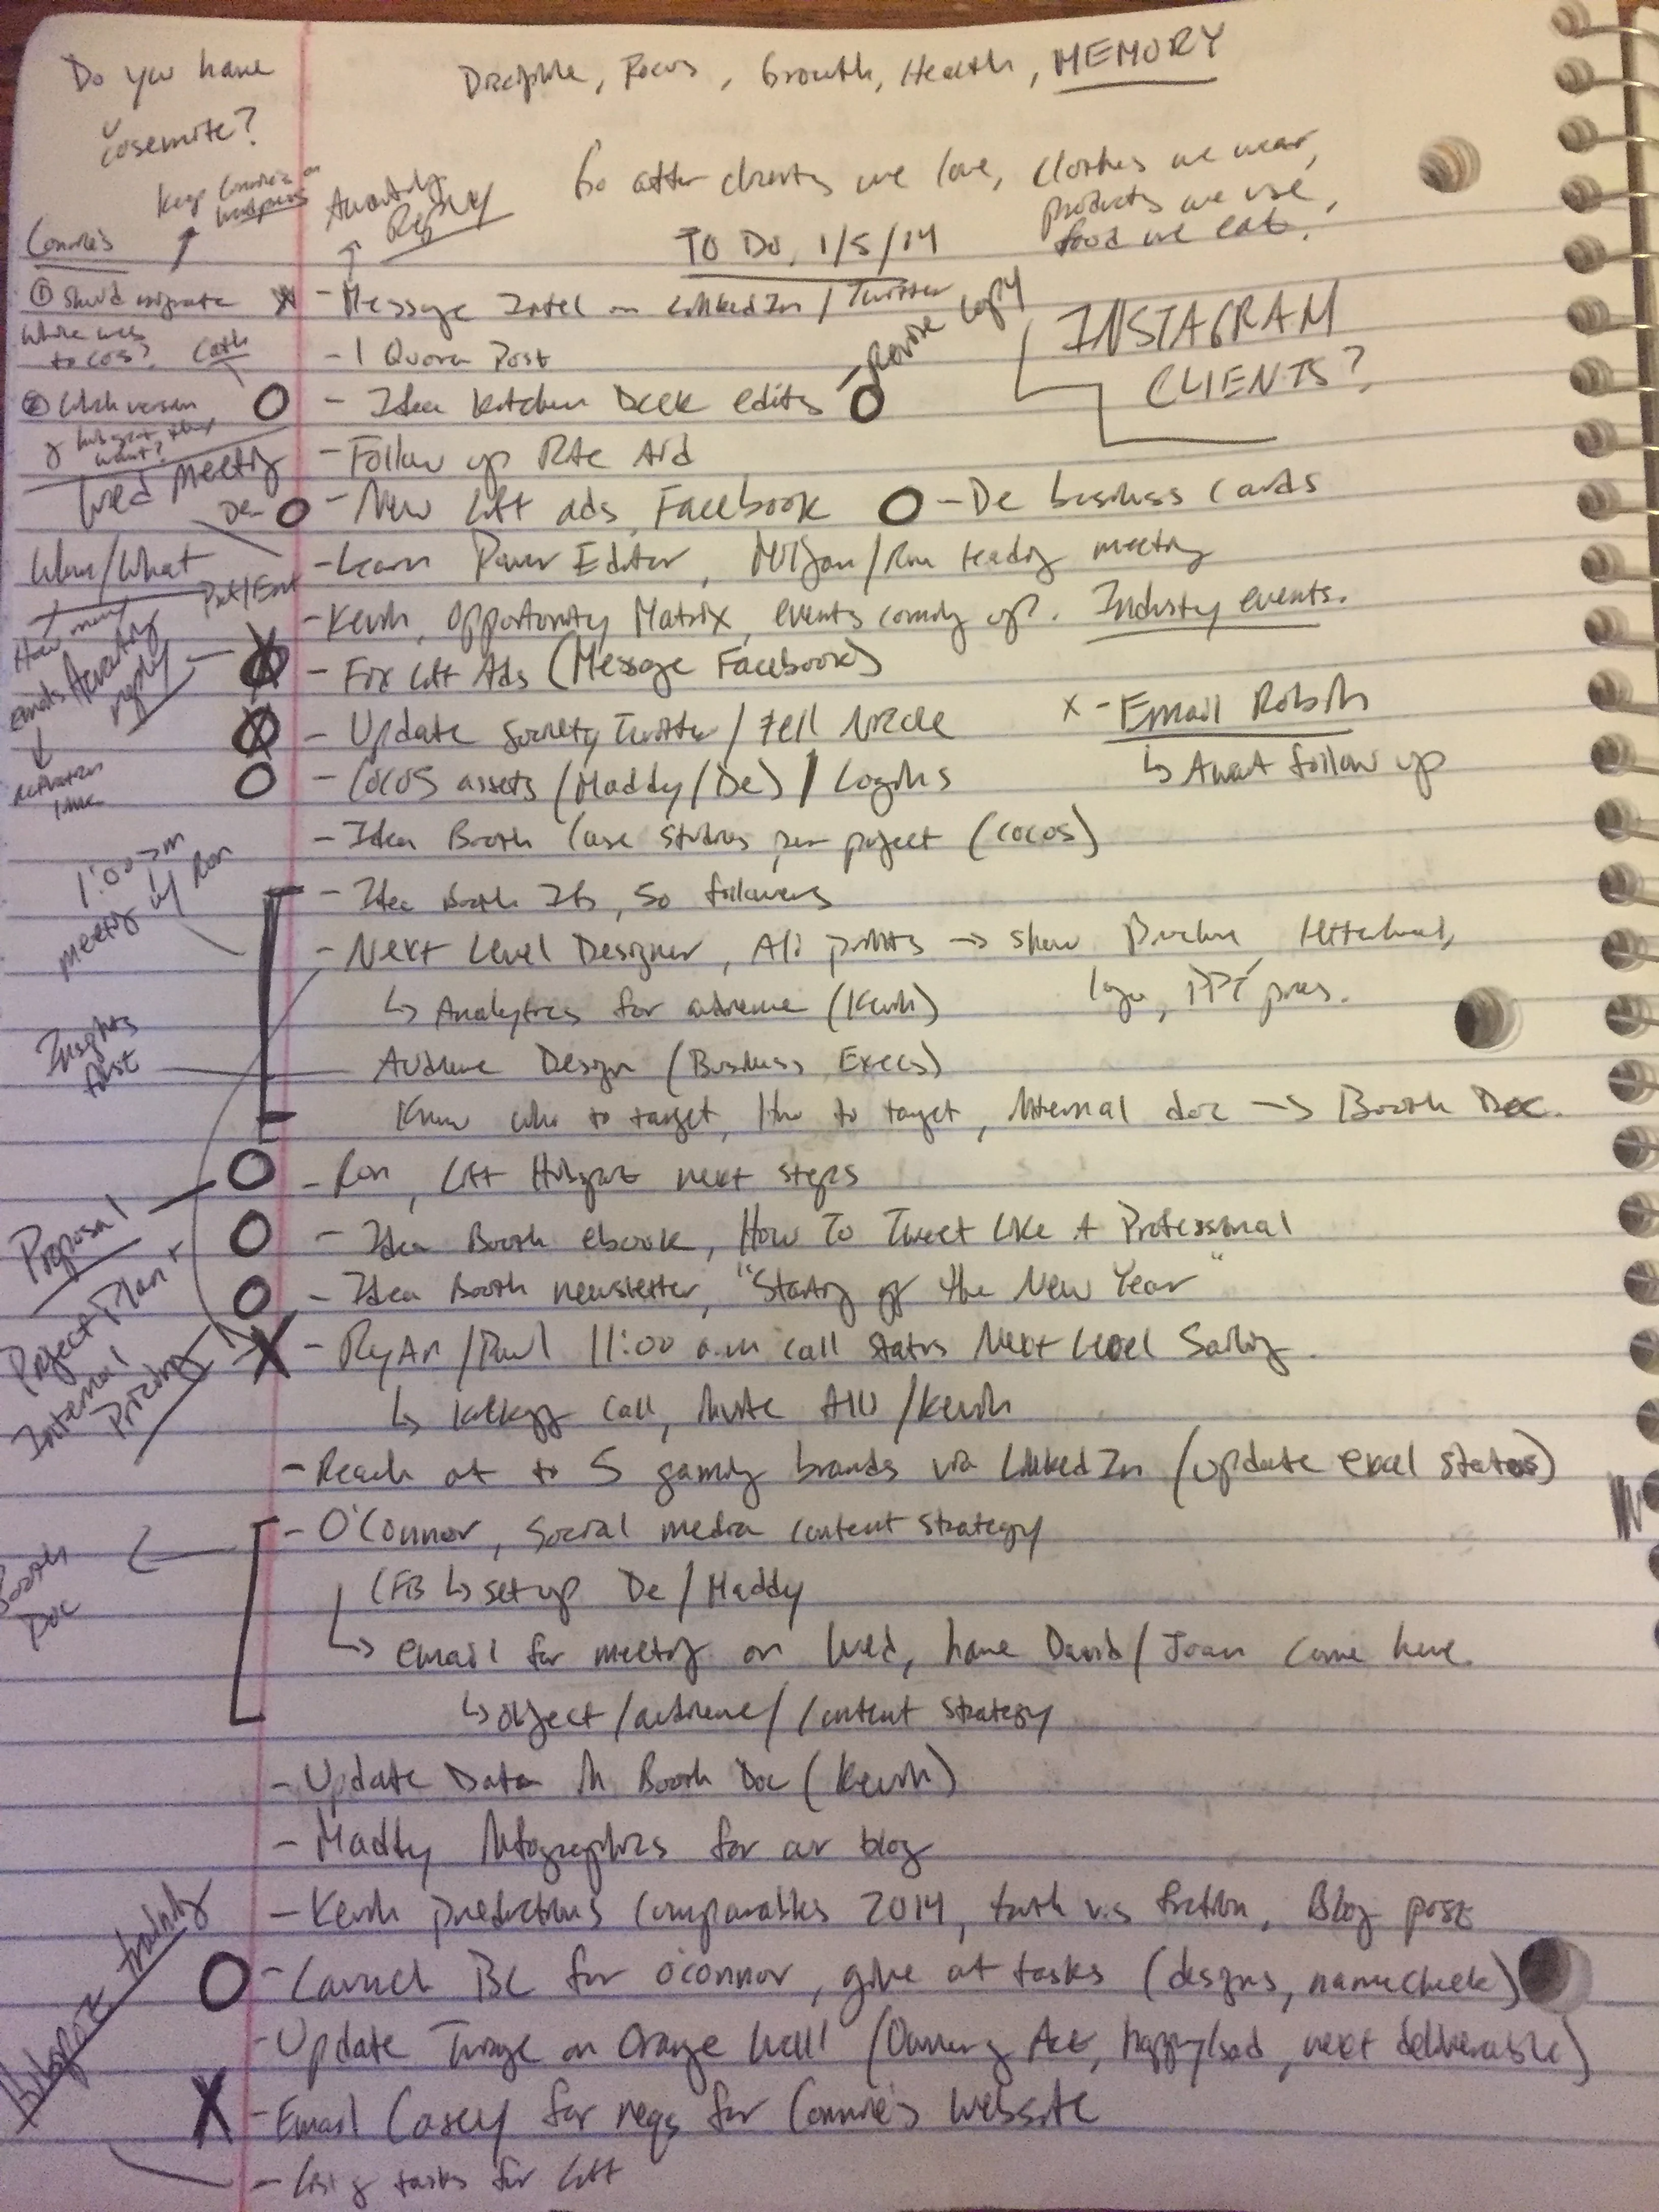 Do you have
Yosemite?
Discipline, Focus, Growth, Health, MEMORY
Go after clients we love, clothes we wear,
products we use,
food we eat.
Keep Connie's on
wordpress
Awaiting
Reply
TO DO, 1/5/14
Connie's
① Should migrate
to COS?
② Which version
of hubspot they
want?
- Message Intel on LinkedIn / Twitter
- 1 Quora Post
- Idea Kitchen Deck edits
- Revise copy
INSTAGRAM
CLIENTS?
- Follow up Rite Aid
Wed Meeting
De
- New Lift ads, Facebook
- De business cards
When/What
- Learn Power Editor, / Ron meeting
- Kevin, Opportunity Matrix, events coming up?. Industry events.
How many
emails Awaiting
reply
- Fix Lift Ads (Message Facebook)
- Update Society Twitter / Tell Nicole
x - Email Robin
↳ Await follow up
- COCOS assets (Maddy/De) / Logins
- Idea Booth Case Studies per project (COCOS)
1:00 pm
meeting w/ Ron
- Idea Booth IG, 50 followers
- Next Level Designer, All points → show letterhead,
logo, PPT pres.
↳ Analytics for audience (Kevin)
Insights
first
Audience Design (Business Execs)
Know who to target, How to target, internal doc → Booth Doc.
- Ron, Lift Hubspot next steps
Proposal
- Idea Booth ebook, How To Tweet Like A Professional
Project Plan +
Internal
Pricing
- Idea Booth newsletter, "Starting off the New Year"
- Ryan/Paul 11:00 a.m call status Next Level Sailing.
↳ kickoff call, invite Ali/Kevin
- Reach out to 5 gaming brands via LinkedIn (update excel status)
Booth
Doc
- O'Connor, Social media content strategy
(FB ↳ set up De / Maddy
↳ email for meeting on Wed, have David/Joan come here.
↳ object/audience/content strategy
- Update Data in Booth Doc (Kevin)
- Maddy Infographics for our blog
- Kevin predictions comparables 2014, truth v.s fiction, Blog post
Hubspot training
- Launch BC for O'Connor, give out tasks (designs, namecheck)
- Update Triage on Orange Wall (Owning Act, happy/sad, next deliverable)
- Email Casey for reqs for Connie's website
- List of tasks for Lift